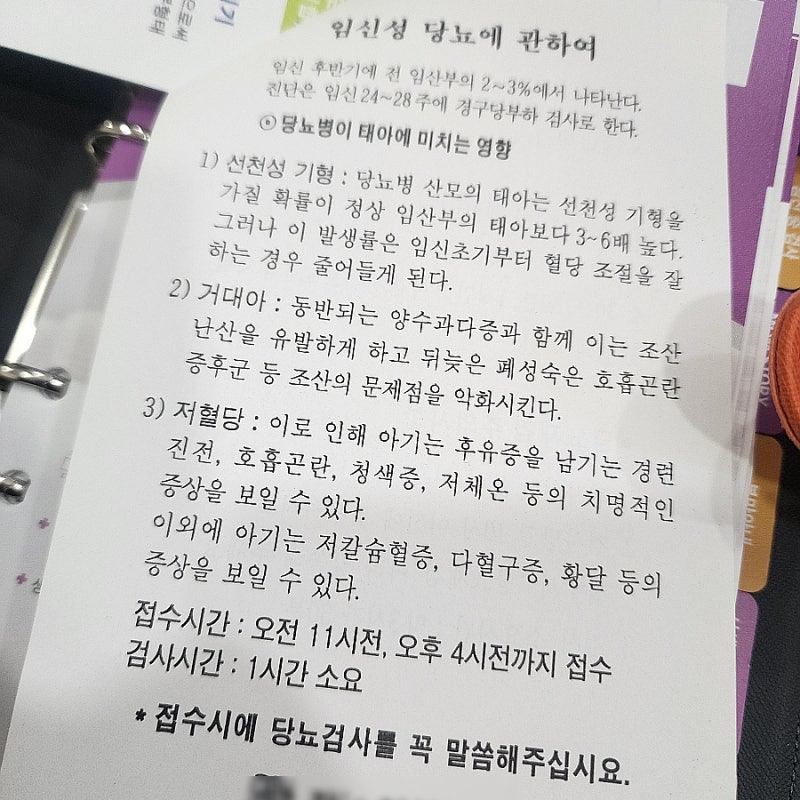 임신성 당뇨에 관하여
임신 후반기에 전 임산부의 2~3%에서 나타난다.
진단은 임신 24~28주에 경구당부하 검사로 한다.
⊙ 당뇨병이 태아에 미치는 영향
1) 선천성 기형 : 당뇨병 산모의 태아는 선천성 기형을
가질 확률이 정상 임산부의 태아보다 3~6배 높다.
그러나 이 발생률은 임신초기부터 혈당 조절을 잘
하는 경우 줄어들게 된다.
2) 거대아 : 동반되는 양수과다증과 함께 이는 조산
난산을 유발하게 하고 뒤늦은 폐성숙은 호흡곤란
증후군 등 조산의 문제점을 악화시킨다.
3) 저혈당 : 이로 인해 아기는 후유증을 남기는 경련
진전, 호흡곤란, 청색증, 저체온 등의 치명적인
증상을 보일 수 있다.
이외에 아기는 저칼슘혈증, 다혈구증, 황달 등의
증상을 보일 수 있다.
접수시간 : 오전 11시전, 오후 4시전까지 접수
검사시간 : 1시간 소요
* 접수시에 당뇨검사를 꼭 말씀해주십시요.